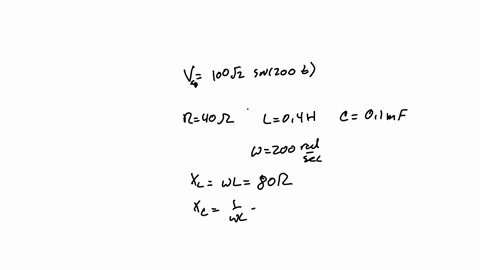 V = 100√2 sin(200 t)
R=40Ω L=0,4H C=0.1mF
W=200 rad/sec
X_L = WL = 80Ω
X_C = 1/WC =